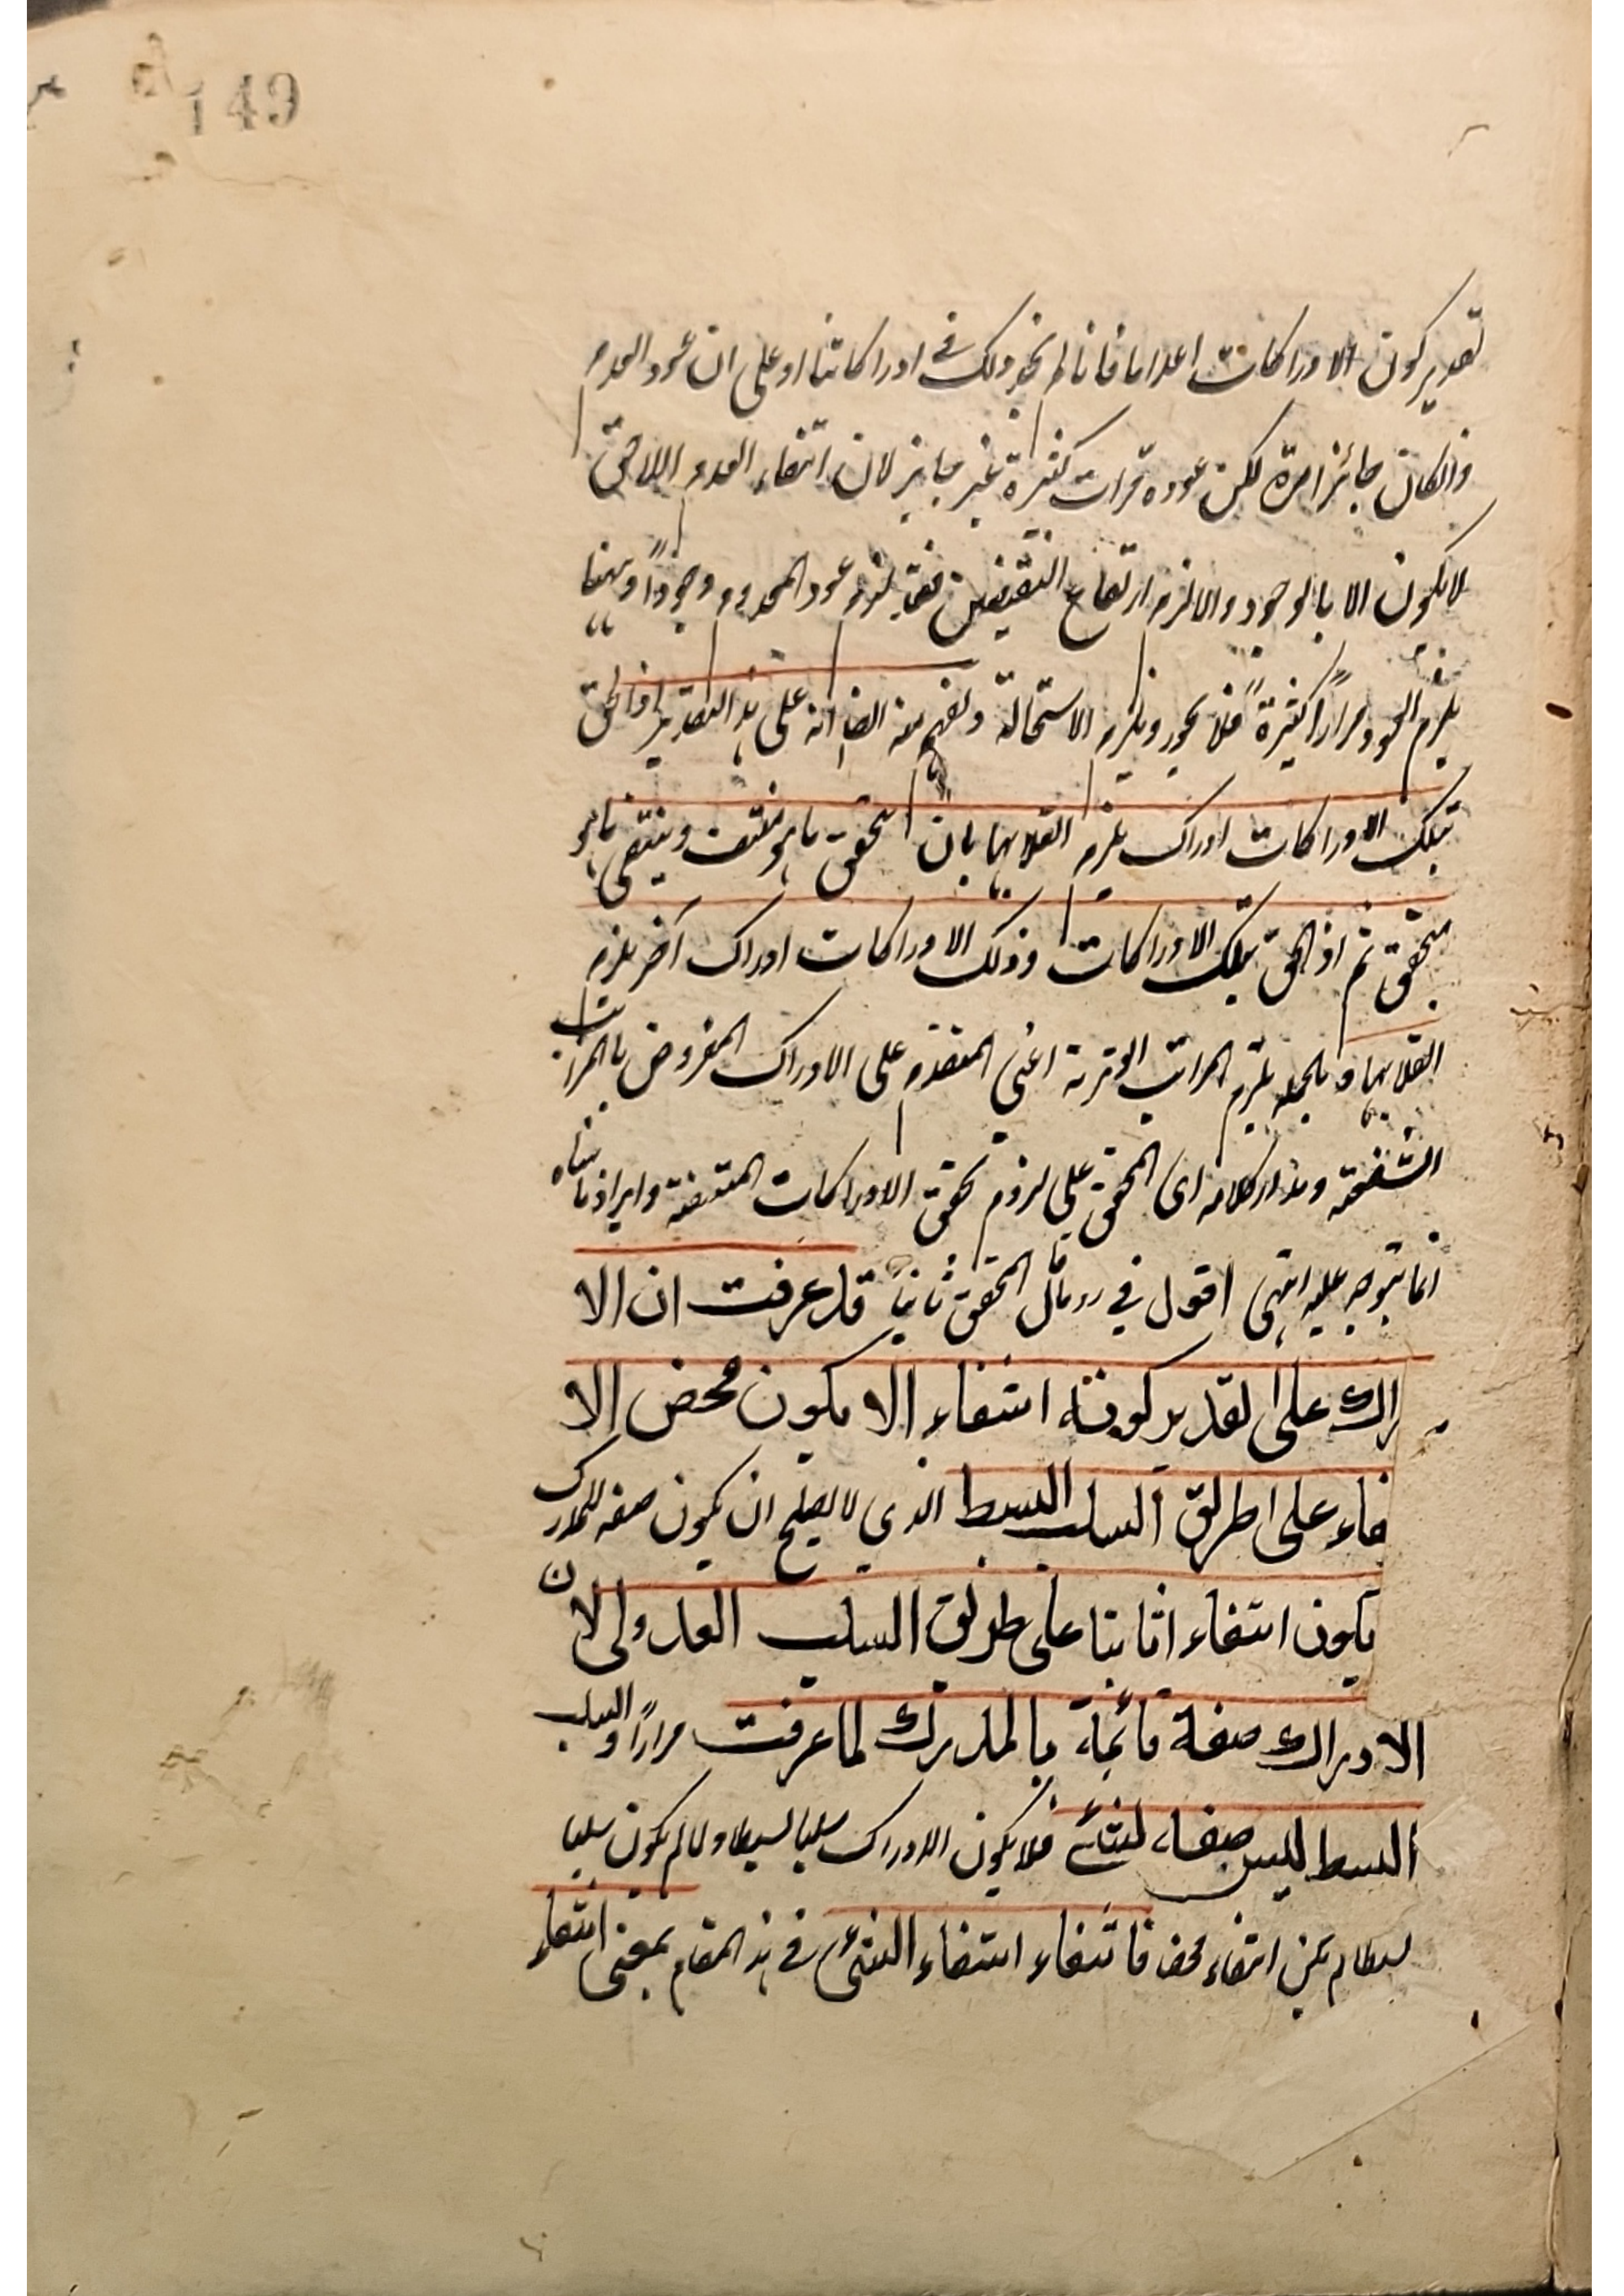 149
تقدير كون الادراكات اعداما فانا لم نجد ذلك في ادراكاتنا او على ان عود العدم
وانكان جائزا مرة لكن عوده مرات كثيرة غير جايز لان انتفاء العدم اللاحق
لا يكون الا بالوجود والا لزم ارتفاع النقيضين ففيه يلزم عود المعدوم وجوداً وههنا
يلزم العود مراراً كثيرةً فلا يجوز ويلزم الاستحالة ويفهم منه ايضا انه على هذا التقدير اذا لحق
بتلك الادراكات ادراك يلزم انقلابها بان يتحقق ما هو منتف وينتفي ما هو
متحقق ثم اذا لحق بتلك الادراكات وذلك الادراكات ادراك آخر يلزم
انقلابها وبالجمله يلزم المراتب الوترية اعني المتقدم على الادراك المفروض بالمراتب
الشفعيّة ومدار كلامه اى المحقق على لزوم تحقق الادراكات المنتفية وايراد ما بيناه
انما يتوجه عليه انتهى اقول في رد ما قال المحقق ثانياً قد عرفت ان الا
راك على تقدير كونه انتفاء الا يكون محض الا
فاء على طريق السلب البسيط الذي لا يصلح ان يكون صفه للمدرك
يكون انتفاء ا ثابتا على طريق السلب العدولى لان
الادراك صفة قائمة بالمدرك لما عرفت مراراً والسلب
البسيط ليس صفة لشئ فلا يكون الادراك سلبا بسيطا ولما لم يكون سلبا
بسيطا لم يكن انتفاء محضا فانتفاء انتفاء الشئ في هذا المقام بمعنى انتفاء